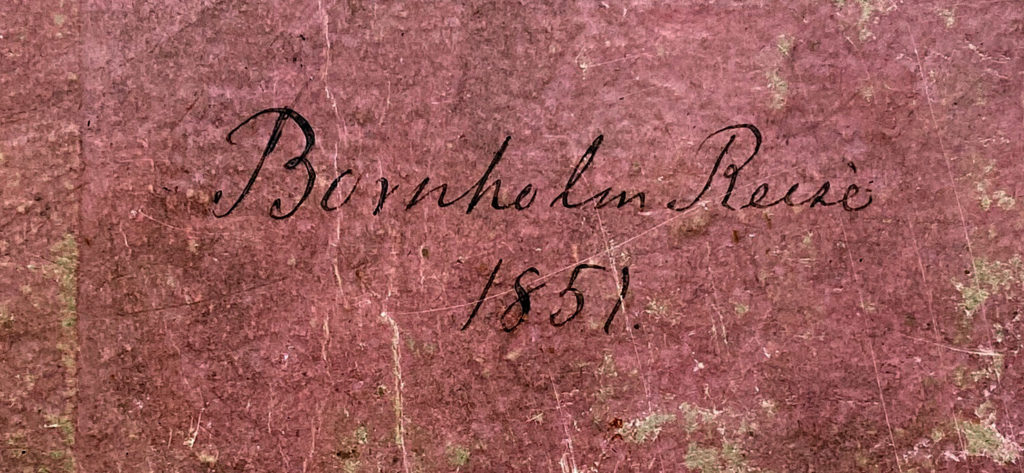 Bornholm Reise
1851.